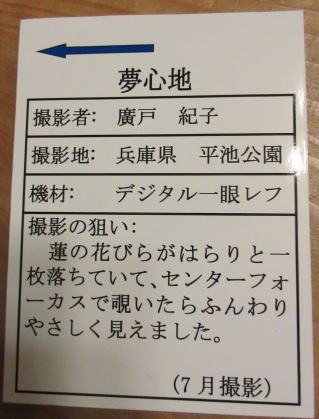 夢心地
撮影者: 廣戸 紀子
撮影地: 兵庫県 平池公園
機材: デジタル一眼レフ
撮影の狙い:
蓮の花びらがはらりと一
枚落ちていて、センターフォ
ーカスで覗いたらふんわり
やさしく見えました。
(7月撮影)